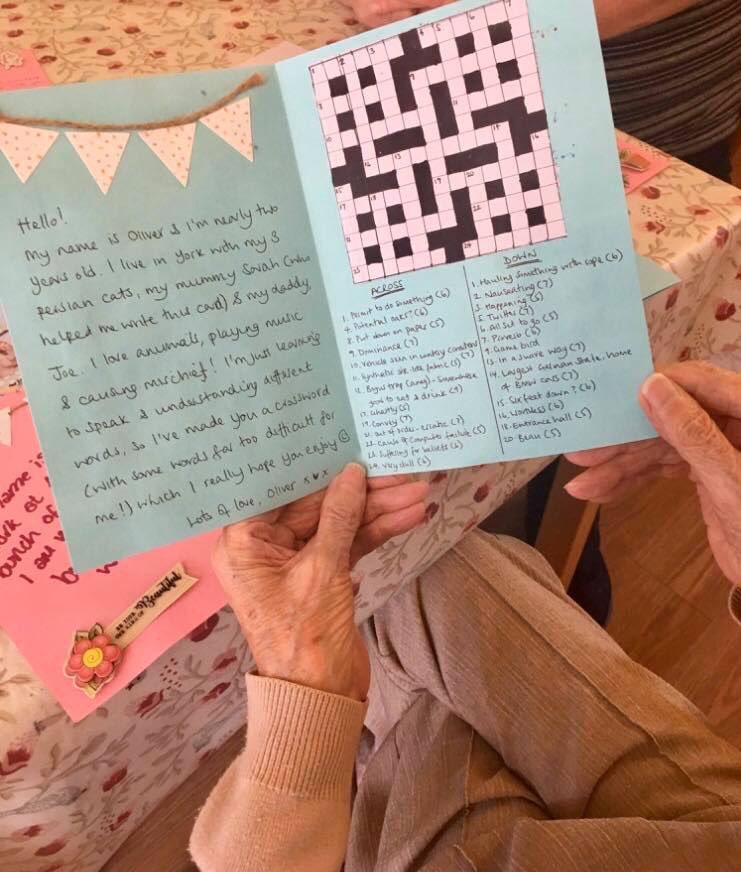 Hello!
My name is Oliver & I'm nearly two
years old. I live in York with my 3
persian cats, my mummy Sarah (who
helped me write this card) & my daddy,
Joe. I love animals, playing music
& causing mischief! I'm just learning
to speak & understanding different
words, so I've made you a crossword
(with some words far too difficult for
me!) which I really hope you enjoy
Lots of love, Oliver x♥x
ACROSS
1. Permit to do something (6)
4. Potential oaks? (6)
8. Put down on paper (5)
9. Dominance (7)
10. Vehicle seen in wintry
11. Synthetic silk like fabric (5)
good to eat & drink (9)
17. Ghostly (5)
19. Convey (7)
21. Out of order - erratic (7)
22. Cause of computer failure (5)
23. Suffering for beliefs (6)
24. Very dull (6)
DOWN
1. Hauling something with rope (6)
2. Nauseating (7)
3. Happening (5)
5. Twitter (7)
6. All set to go (5)
7. Pinreib (6)
9. Game bird
13. In a suave way (7)
14. Largest German state, home
of Brown cows (7)
15. Six feet down? (6)
16. Wordless (6)
18. Entrance hall (5)
20. Beau (5)
Beautiful